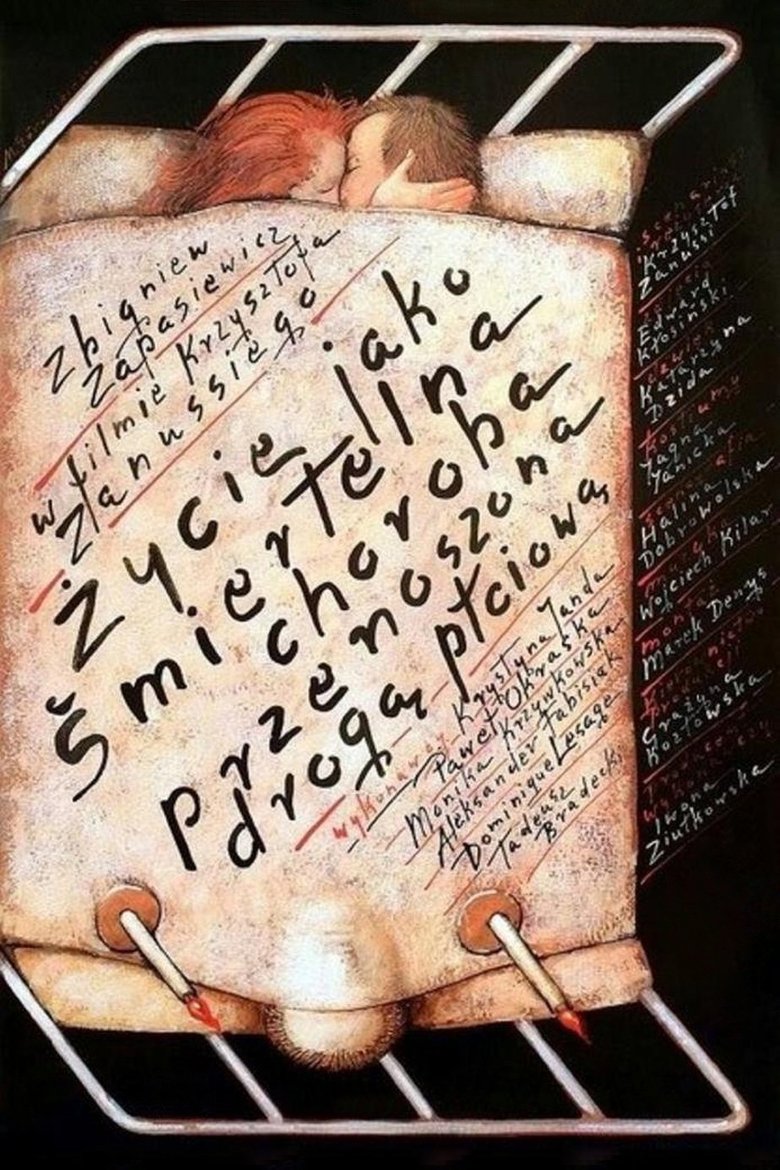 Zbigniew
Zapasiewicz
w filmie Krzysztofa
Zanussiego
Życie jako
śmiertelna
choroba
przenoszona
drogą płciową
wykonawcy Krystyna Janda
Paweł Okraska
Monika Krzywkowska
Aleksander Fabisiak
Dominique Lesage
Tadeusz
Bradecki
scenariusz
Krzysztof
Zanussi
zdjęcia
Edward
Kłosiński
dźwięk
Katarzyna
Dzida
kostiumy
Jagna
Janicka
scenografia
Halina
Dobrowolska
muzyka
Wojciech Kilar
montaż
Marek Denys
kierownictwo
produkcji
Grażyna
Kozłowska
producent
wykonawczy
Iwona
Ziułkowska